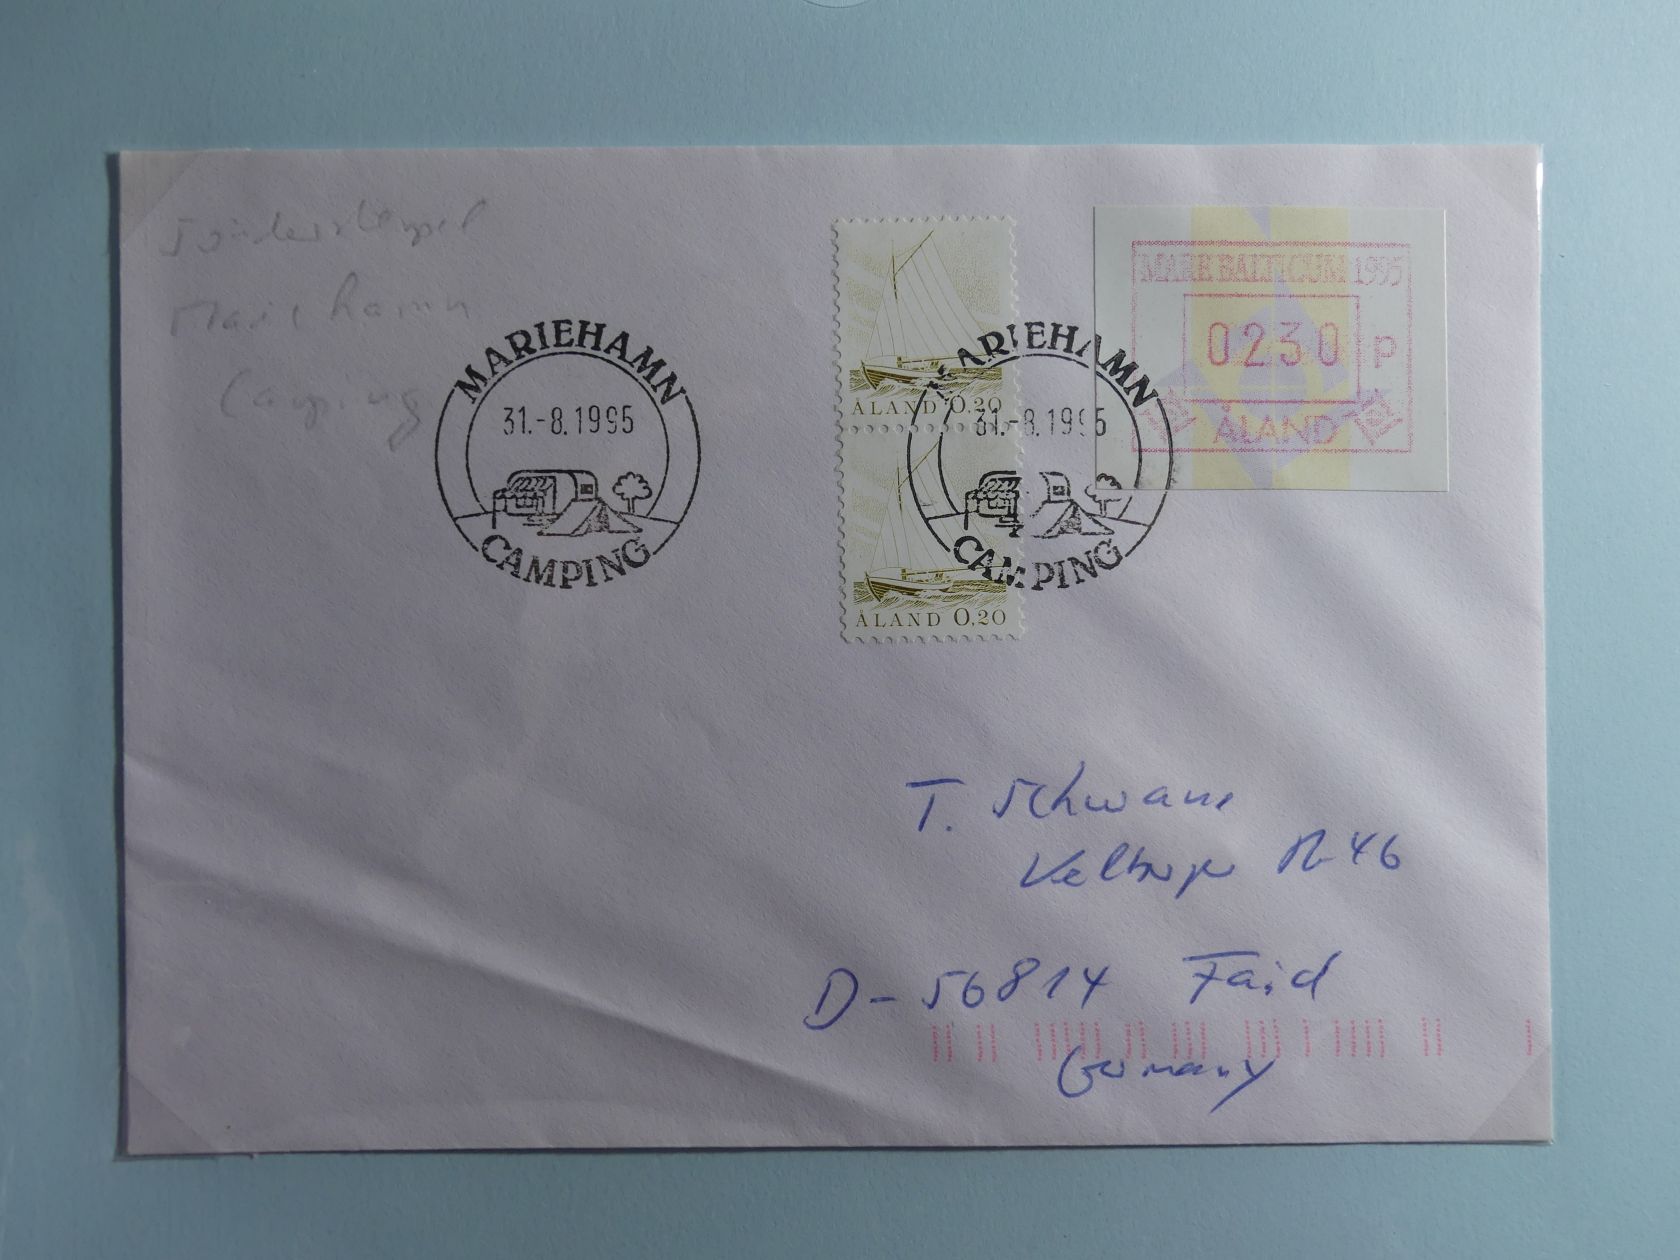 Sonderstempel
Mariehamn
Camping
MARIEHAMN
31.-8.1995
CAMPING
ÅLAND 0,20
ÅLAND 0,20
MARIEHAMN
31.-8.1995
CAMPING
MARE BALTICUM 1995
0230 p
ÅLAND
T. Schwarz
46
D-56814 Faid
Germany